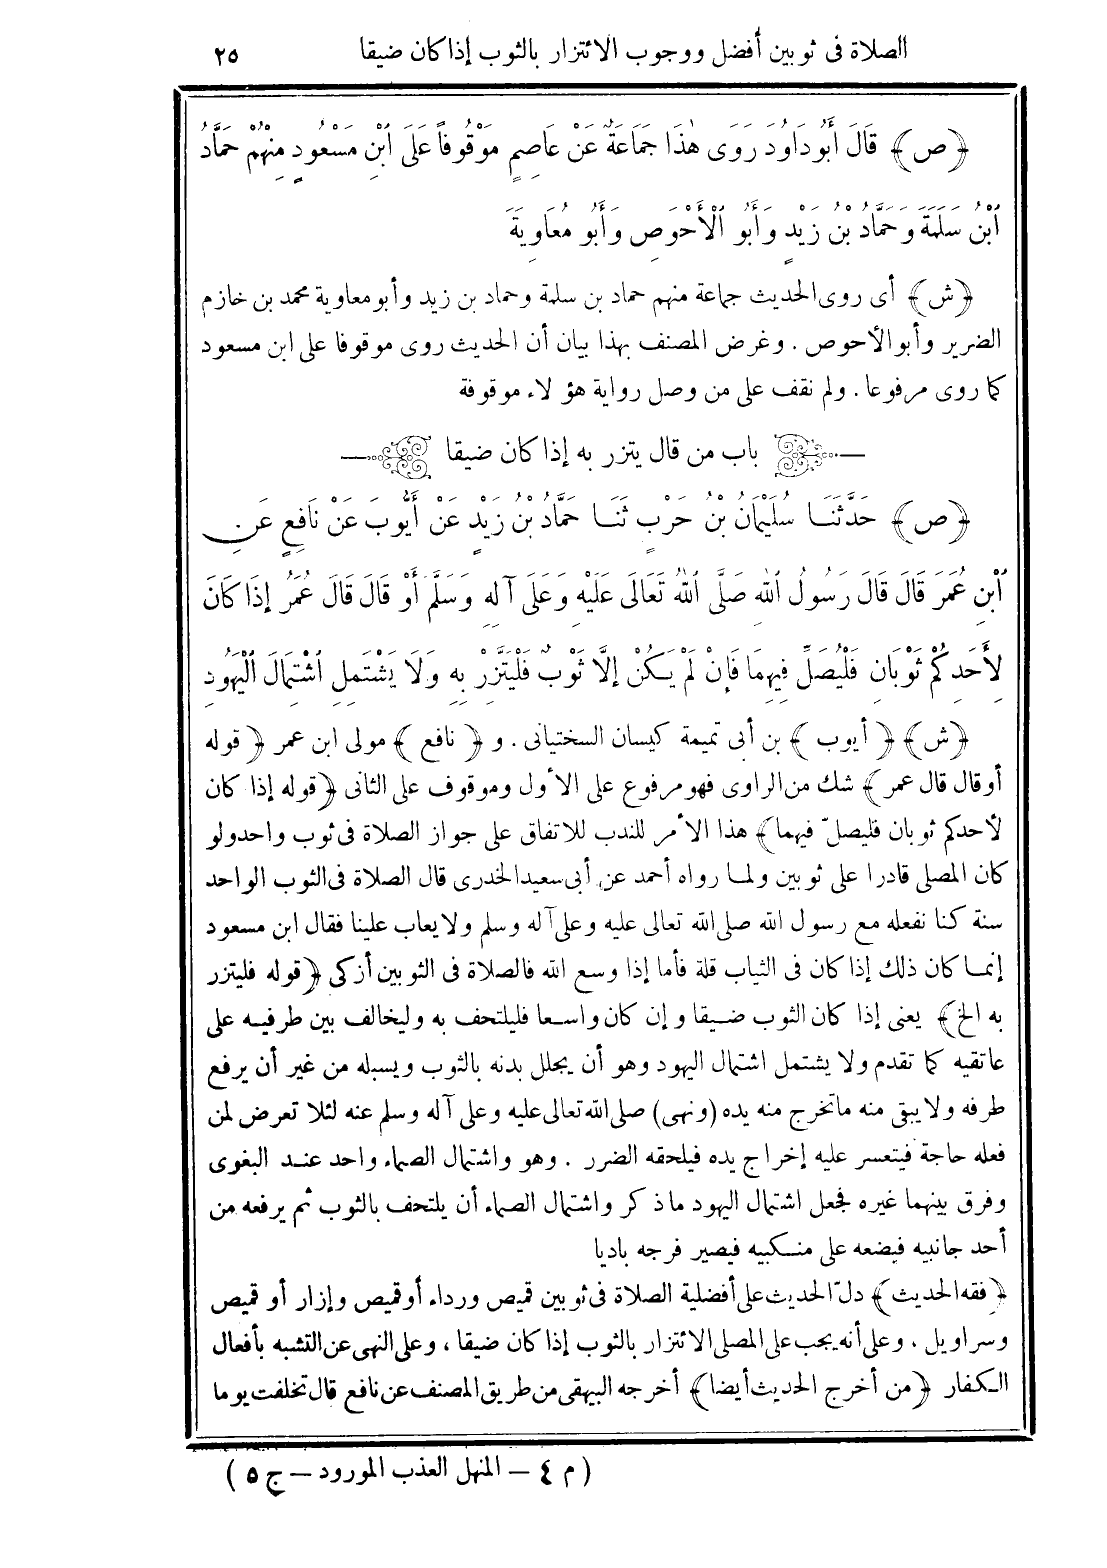 الصلاة فى ثوبين أفضل ووجوب الائتزار بالثوب إذا كان ضيقا ٢٥
﴿ص﴾ قَالَ أَبُو دَاوُدَ رَوَى هٰذَا جَمَاعَةٌ عَنْ عَاصِمٍ مَوْقُوفاً عَلَى ابْنِ مَسْعُودٍ مِنْهُمْ حَمَّادُ
ابْنُ سَلَمَةَ وَحَمَّادُ بْنُ زَيْدٍ وَأَبُو الْأَحْوَصِ وَأَبُو مُعَاوِيَةَ
﴿ش﴾ أى روى الحديث جماعة منهم حماد بن سلمة وحماد بن زيد وأبو معاوية محمد بن خازم
الضرير وأبو الأحوص . وغرض المصنف بهذا بيان أن الحديث روى موقوفا على ابن مسعود
كما روى مرفوعا . ولم نقف على من وصل رواية هؤلاء موقوفة
باب من قال يتزر به إذا كان ضيقا
﴿ص﴾ حَدَّثَنَا سُلَيْمَانُ بْنُ حَرْبٍ ثَنَا حَمَّادُ بْنُ زَيْدٍ عَنْ أَيُّوبَ عَنْ نَافِعٍ عَنِ
ابْنِ عُمَرَ قَالَ قَالَ رَسُولُ اللهِ صَلَّى اللهُ تَعَالَى عَلَيْهِ وَعَلَى آلِهِ وَسَلَّمَ أَوْ قَالَ قَالَ عُمَرُ إِذَا كَانَ
لِأَحَدِكُمْ ثَوْبَانِ فَلْيُصَلِّ فِيهِمَا فَإِنْ لَمْ يَكُنْ إِلَّا ثَوْبٌ فَلْيَتَّزِرْ بِهِ وَلَا يَشْتَمِلِ اشْتِمَالَ الْيَهُودِ
﴿ش﴾ ﴿أيوب﴾ بن أبى تميمة كيسان السختيانى . و ﴿نافع﴾ مولى ابن عمر ﴿قوله
أو قال قال عمر﴾ شك من الراوى فهو مرفوع على الأول وموقوف على الثانى ﴿قوله إذا كان
لأحدكم ثوبان فليصلّ فيهما﴾ هذا الأمر للندب للاتفاق على جواز الصلاة فى ثوب واحد ولو
كان المصلى قادرا على ثوبين ولما رواه أحمد عن أبى سعيد الخدرى قال الصلاة فى الثوب الواحد
سنة كنا نفعله مع رسول الله صلى الله تعالى عليه وعلى آله وسلم ولا يعاب علينا فقال ابن مسعود
إنما كان ذلك إذا كان فى الثياب قلة فأما إذا وسع الله فالصلاة فى الثوبين أزكى ﴿قوله فليتزر
به الخ﴾ يعنى إذا كان الثوب ضيقا وإن كان واسعا فليلتحف به وليخالف بين طرفيه على
عاتقيه كما تقدم ولا يشتمل اشتمال اليهود وهو أن يجلل بدنه بالثوب ويسبله من غير أن يرفع
طرفه ولا يبقى منه ما تخرج منه يده (ونهى) صلى الله تعالى عليه وعلى آله وسلم عنه لئلا تعرض لمن
فعله حاجة فيتعسر عليه إخراج يده فيلحقه الضرر . وهو واشتمال الصماء واحد عند البغوى
وفرق بينهما غيره فجعل اشتمال اليهود ما ذكر واشتمال الصماء أن يلتحف بالثوب ثم يرفعه من
أحد جانبيه فيضعه على منكبيه فيصير فرجه باديا
﴿فقه الحديث﴾ دلّ الحديث على أفضلية الصلاة فى ثوبين قميص ورداء أو قميص وإزار أو قميص
وسراويل . وعلى أنه يجب على المصلى الائتزار بالثوب إذا كان ضيقا ، وعلى النهى عن التشبه بأفعال
الكفار ﴿من أخرج الحديث أيضا﴾ أخرجه البيهقى من طريق المصنف عن نافع قال تخلفت يوما
(م ٤ – المنهل العذب المورود – ج ٥)